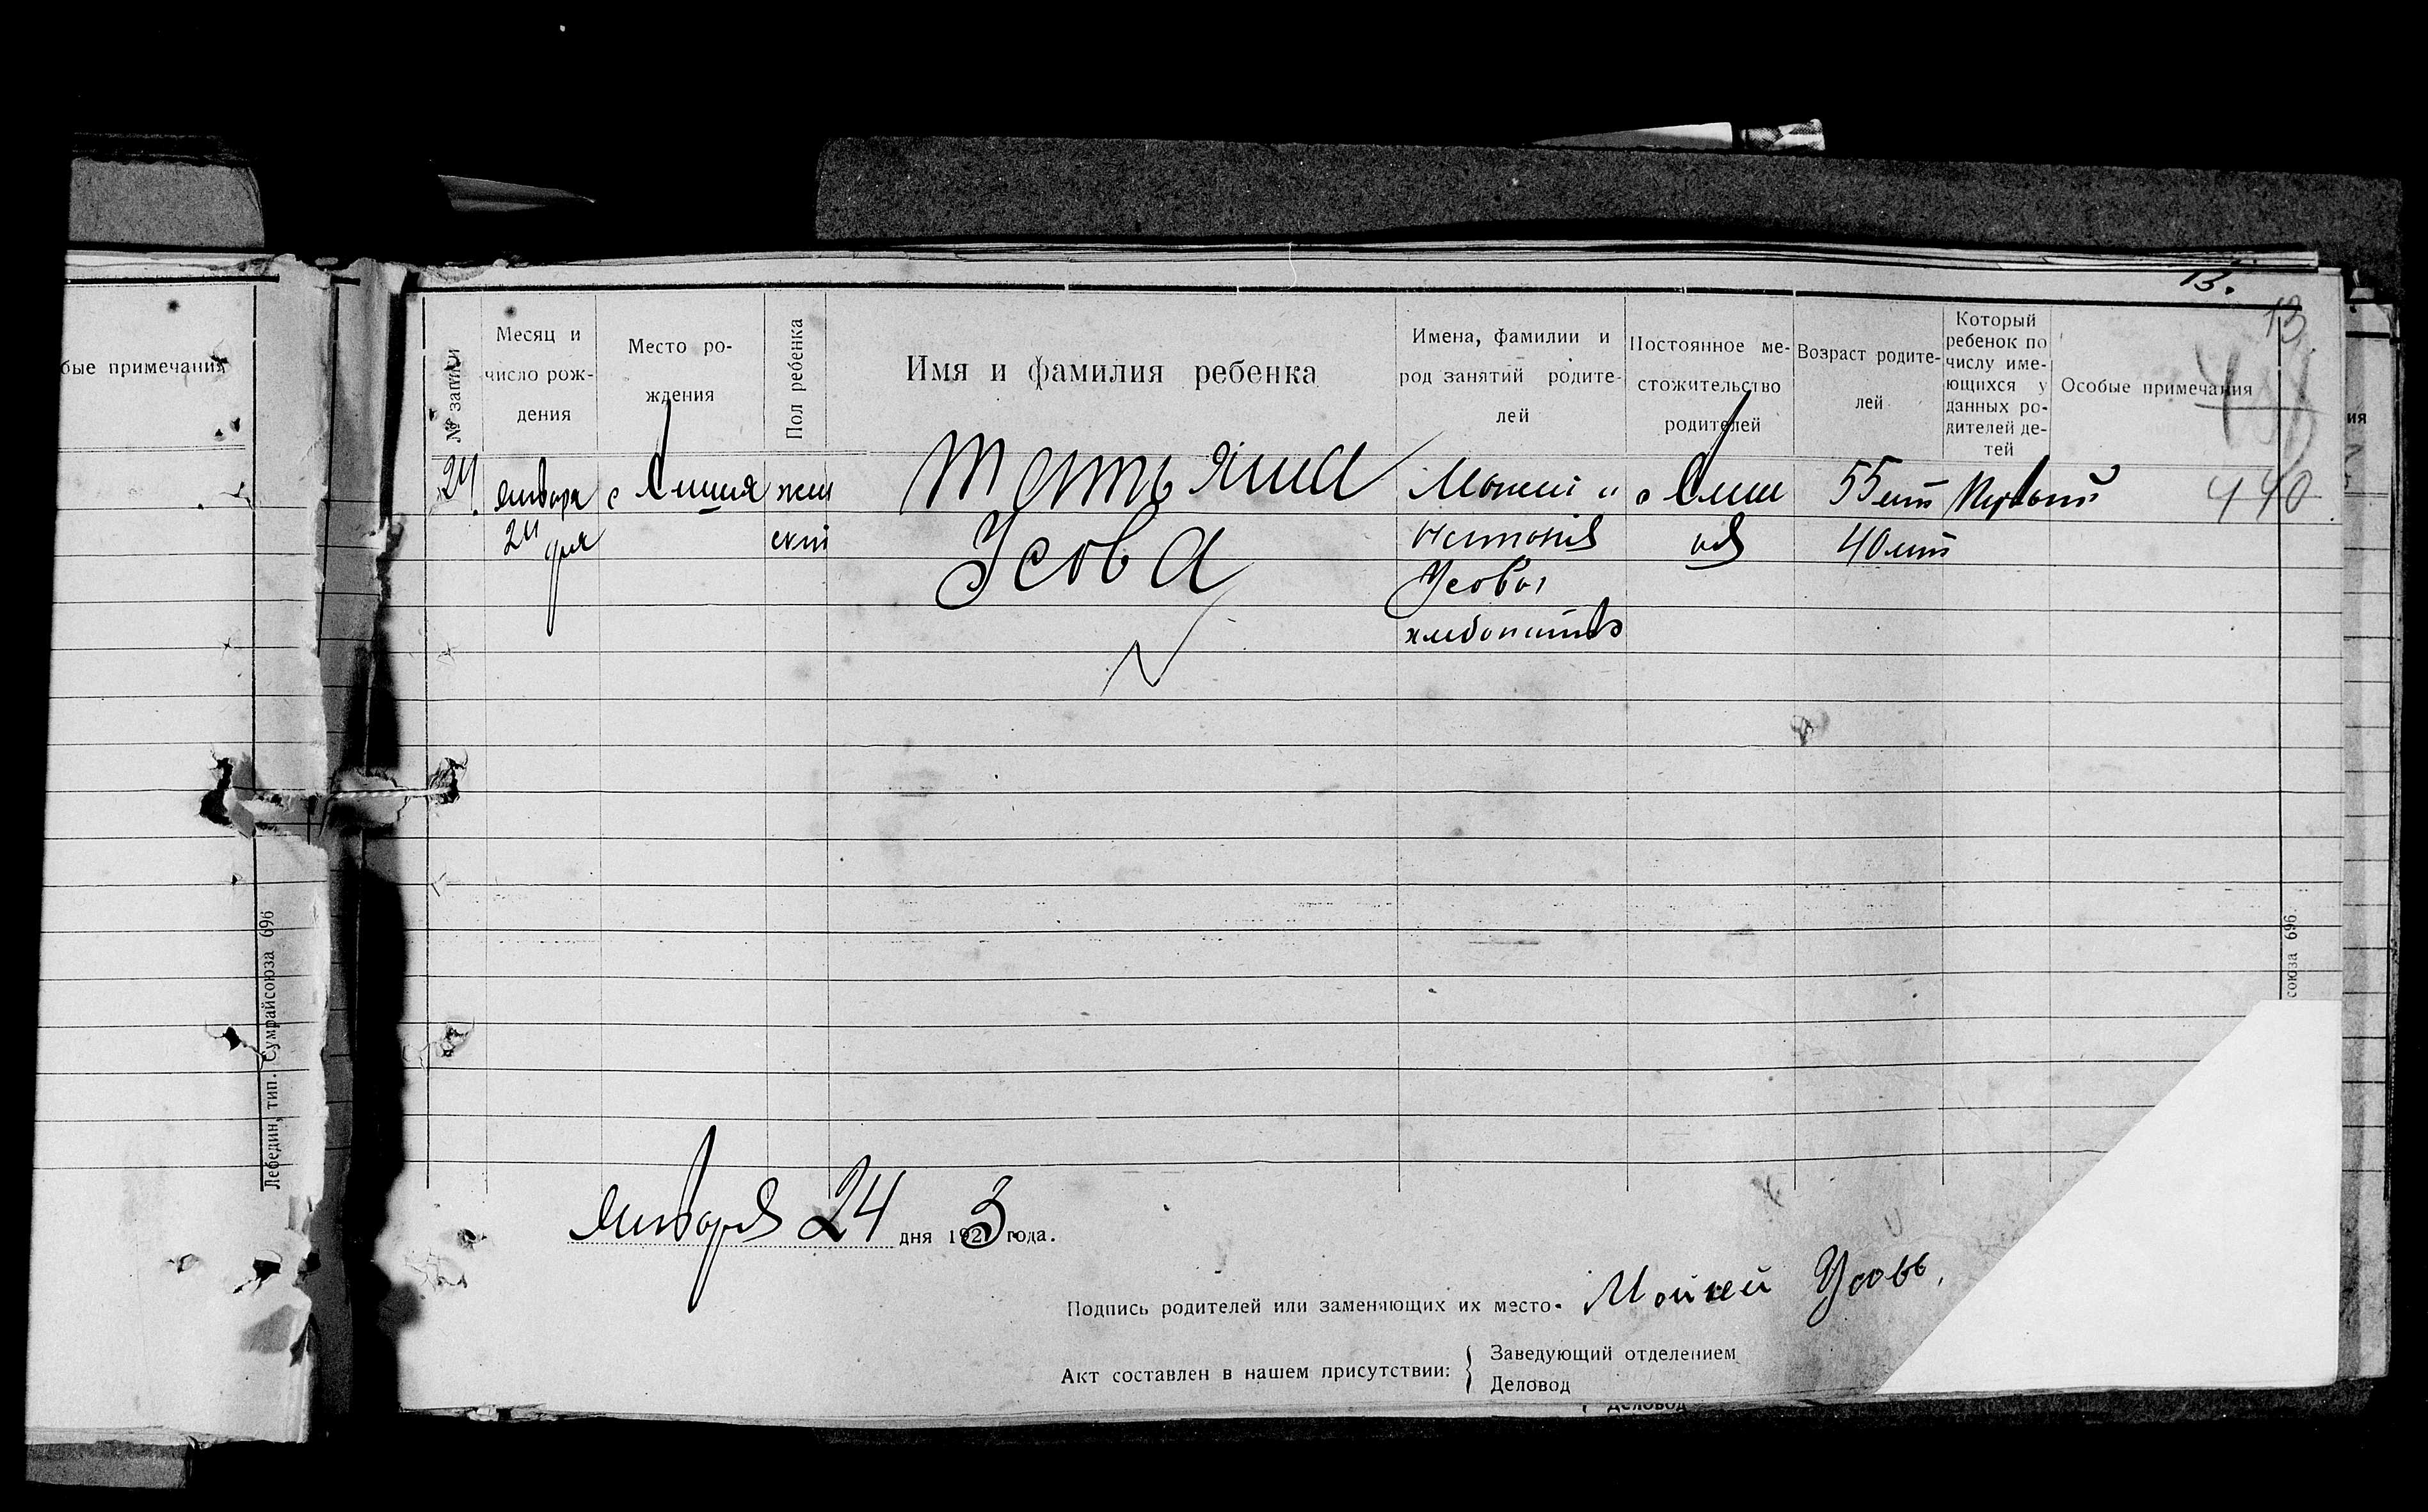 13.
13
бые примечания
№ записи
Месяц и число рождения
Место рождения
Пол ребенка
Имя и фамилия ребенка
Имена, фамилии и род занятий родителей
Постоянное местожительство родителей
Возраст родителей
Который ребенок по числу имеющихся у данных родителей детей
Особые примечания
440
24. января
24 дня
с
жен
ский
Татьяна
Усова
Моисей и
Усовы
55 лет
40 лет
Первый
Января 24 дня 1923 года.
Подпись родителей или заменяющих их место. Мойсей Усовъ.
Акт составлен в нашем присутствии:
Заведующий отделением
Деловод
Деловод
Лебедин, тип. Сумрайсоюза 696
союза 696.